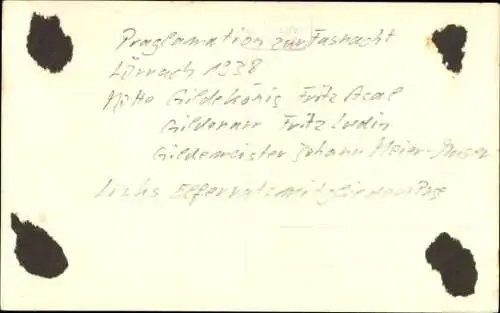 Praglamation zur Fasnacht
Lörrach 1938
Mitte Gildekönig Fritz Asal
Gildenarr Fritz Ludin
Gildemeister Johann Meier-
Links Elferratsmitglieder